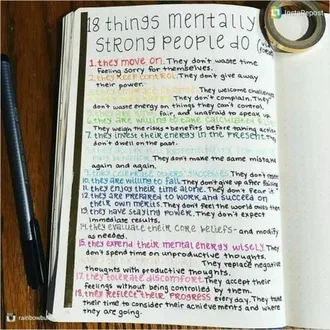 InstaRepost
18 things mentally
strong people do
1. they move on. They don't waste time
feeling sorry for themselves.
2. they keep control. They don't give away
their power.
They welcome challenges
They don't complain. They
don't waste energy on things they can't control.
fair, and unafraid to speak up
6. they are willing to take calculated
They weigh the risks + benefits before taking action
7. they invest their energy in the present.
don't dwell on the past.
They don't make the same mistake
again and again.
celebrate others' success. They don't
10. they are willing to fail. They don't give up after failing
11. they enjoy their time alone. They don't fear it.
12. they are prepared to work, and succeed on
their own merits. They don't feel the world owes them
13. they have staying power. They don't expect
immediate results.
14. they evaluate their core beliefs - and modify
as needed.
15. they expend their mental energy wisely. They
don't spend time on unproductive thoughts.
They replace negative
thoughts with productive thoughts.
17. they tolerate discomfort. They accept their
feelings without being controlled by them.
18. they reflect their progress every day. They take
their time to consider their achievements and where
they are going.